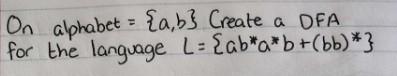 On alphabet = {a,b} Create a DFA
for the language L = {ab*a*b+(bb)*}